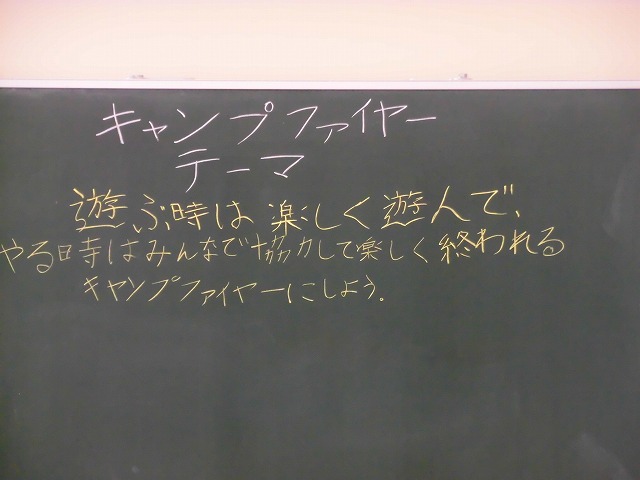 キャンプファイヤー
テーマ
遊ぶ時は楽しく遊んで、
やる時はみんなで協力して楽しく終われる
キャンプファイヤーにしよう。